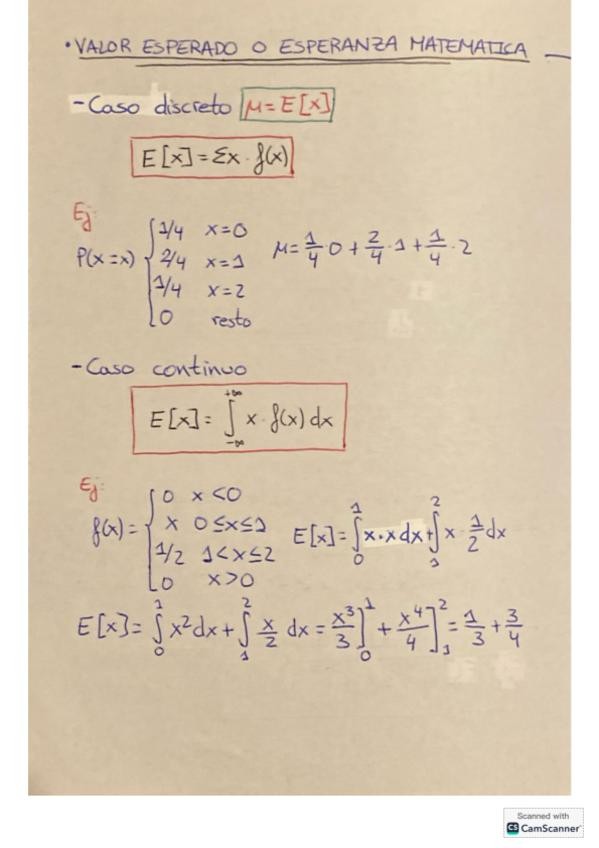 • VALOR ESPERADO O ESPERANZA MATEMATICA
- Caso discreto μ = E[x]
E[x] = Σx · f(x)
Ej:
P(x=x) { 1/4 x=0
2/4 x=1
1/4 x=2
0 resto
μ = 1/4 · 0 + 2/4 · 1 + 1/4 · 2
- Caso continuo
E[x] = ∫_{-∞}^{+∞} x · f(x) dx
Ej:
f(x) = { 0 x<0
x 0≤x≤1
1/2 1<x≤2
0 x>0
E[x] = ∫_0^1 x·x dx + ∫_1^2 x · 1/2 dx
E[x] = ∫_0^1 x² dx + ∫_1^2 x/2 dx = x³/3]_0^1 + x⁴/4]_1^2 = 1/3 + 3/4
Scanned with
CS CamScanner